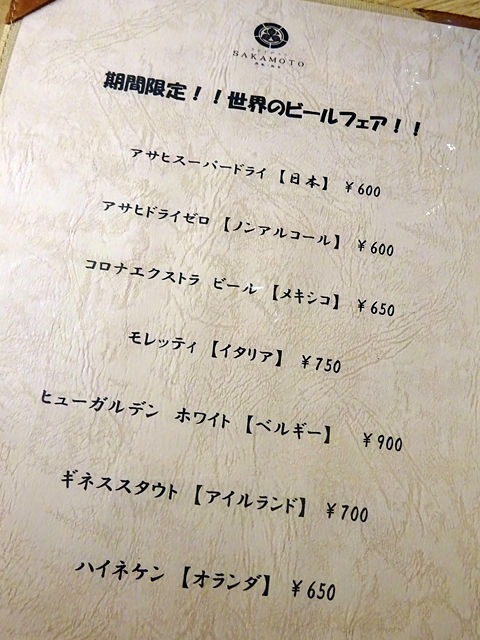 SAKAMOTO
期間限定！！世界のビールフェア！！
アサヒスーパードライ【日本】 ￥600
アサヒドライゼロ【ノンアルコール】 ￥600
コロナエクストラ ビール【メキシコ】 ￥650
モレッティ【イタリア】 ￥750
ヒューガルデン ホワイト【ベルギー】 ￥900
ギネススタウト【アイルランド】 ￥700
ハイネケン【オランダ】 ￥650